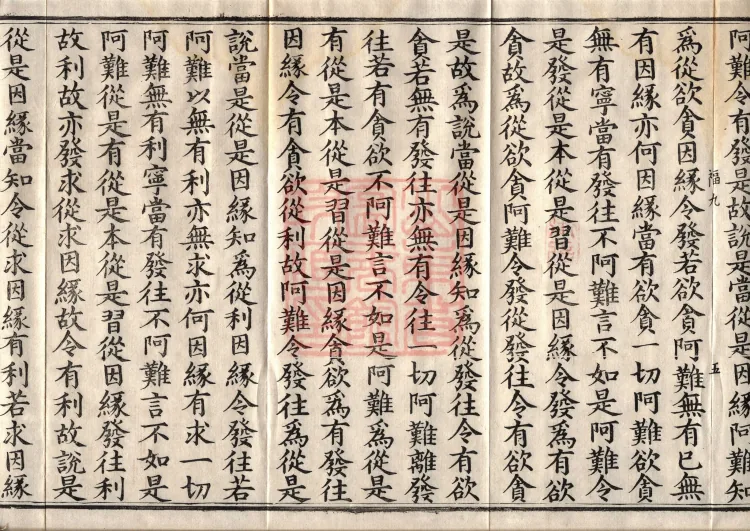 阿難令有發是故說是當從是因緣阿難知
福九 五
爲從欲貪因緣令發若欲貪阿難無有已無
有因緣亦何因緣當有欲貪一切阿難欲貪
無有寧當有發往不阿難言不如是阿難令
是發從是本從是習從是因緣令發爲有欲
貪故爲從欲貪阿難令發從發往令有欲貪
是故爲說當從是因緣知爲從發往令有欲
貪若無有發往亦無有令往一切阿難離發
往若有貪欲不阿難言不如是阿難爲從是
有從是本從是習從是因緣貪欲爲有發往
因緣令有貪欲從利故阿難令發往爲從是
說當是從是因緣知爲從利因緣令發往若
阿難以無有利亦無求亦何因緣有求一切
阿難無有利寧當有發往不阿難言不如是
阿難從是有從是本從是習從因緣發往利
故利故亦發求從求因緣故令有利故說是
從是因緣當知令從求因緣有利若求因緣